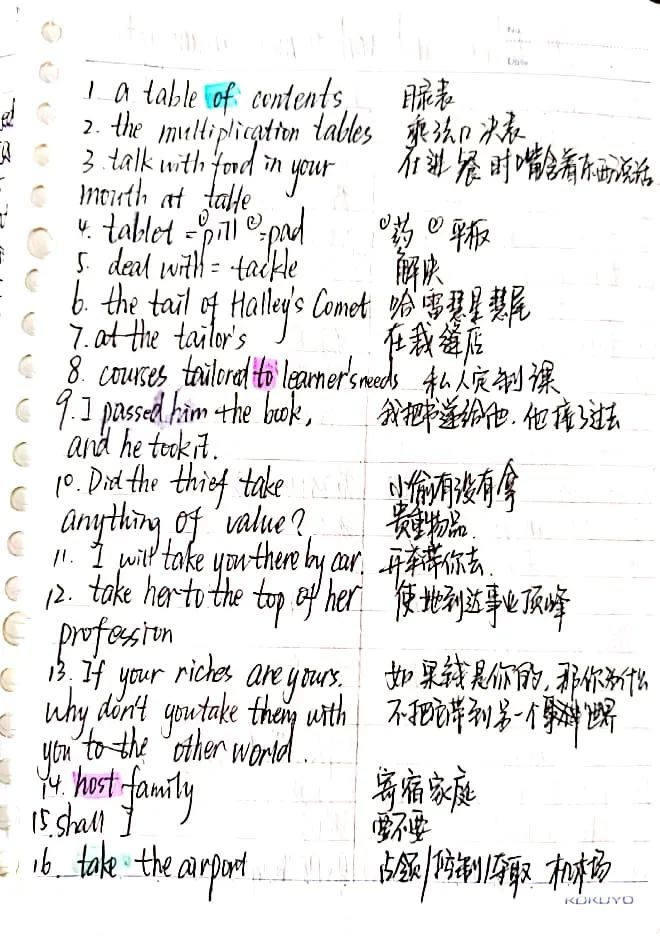 No.
Date
1. a table of contents 目录表
2. the multiplication tables 乘法口决表
3. talk with food in your 在进餐时嘴含着东西说话
mouth at table
4. tablet = ①pill ②=pad ①药 ②平板
5. deal with = tackle 解决
6. the tail of Halley's Comet 哈雷慧星慧尾
7. at the tailor's 在裁缝店
8. courses tailored to learner's needs 私人定制课
9. I passed him the book, 我把书递给他，他接了过去
and he took it.
10. Did the thief take 小偷有没有拿
anything of value? 贵重物品.
11. I will take you there by car. 开车带你去.
12. take her to the top of her 使她到达事业顶峰
profession
13. If your riches are yours. 如果钱是你的，那你为什么
why don't you take them with 不把它带到另一个世界
you to the other world.
14. host family 寄宿家庭
15. shall I 要不要
16. take the airport 占领/控制/夺取 机场
KOKUYO